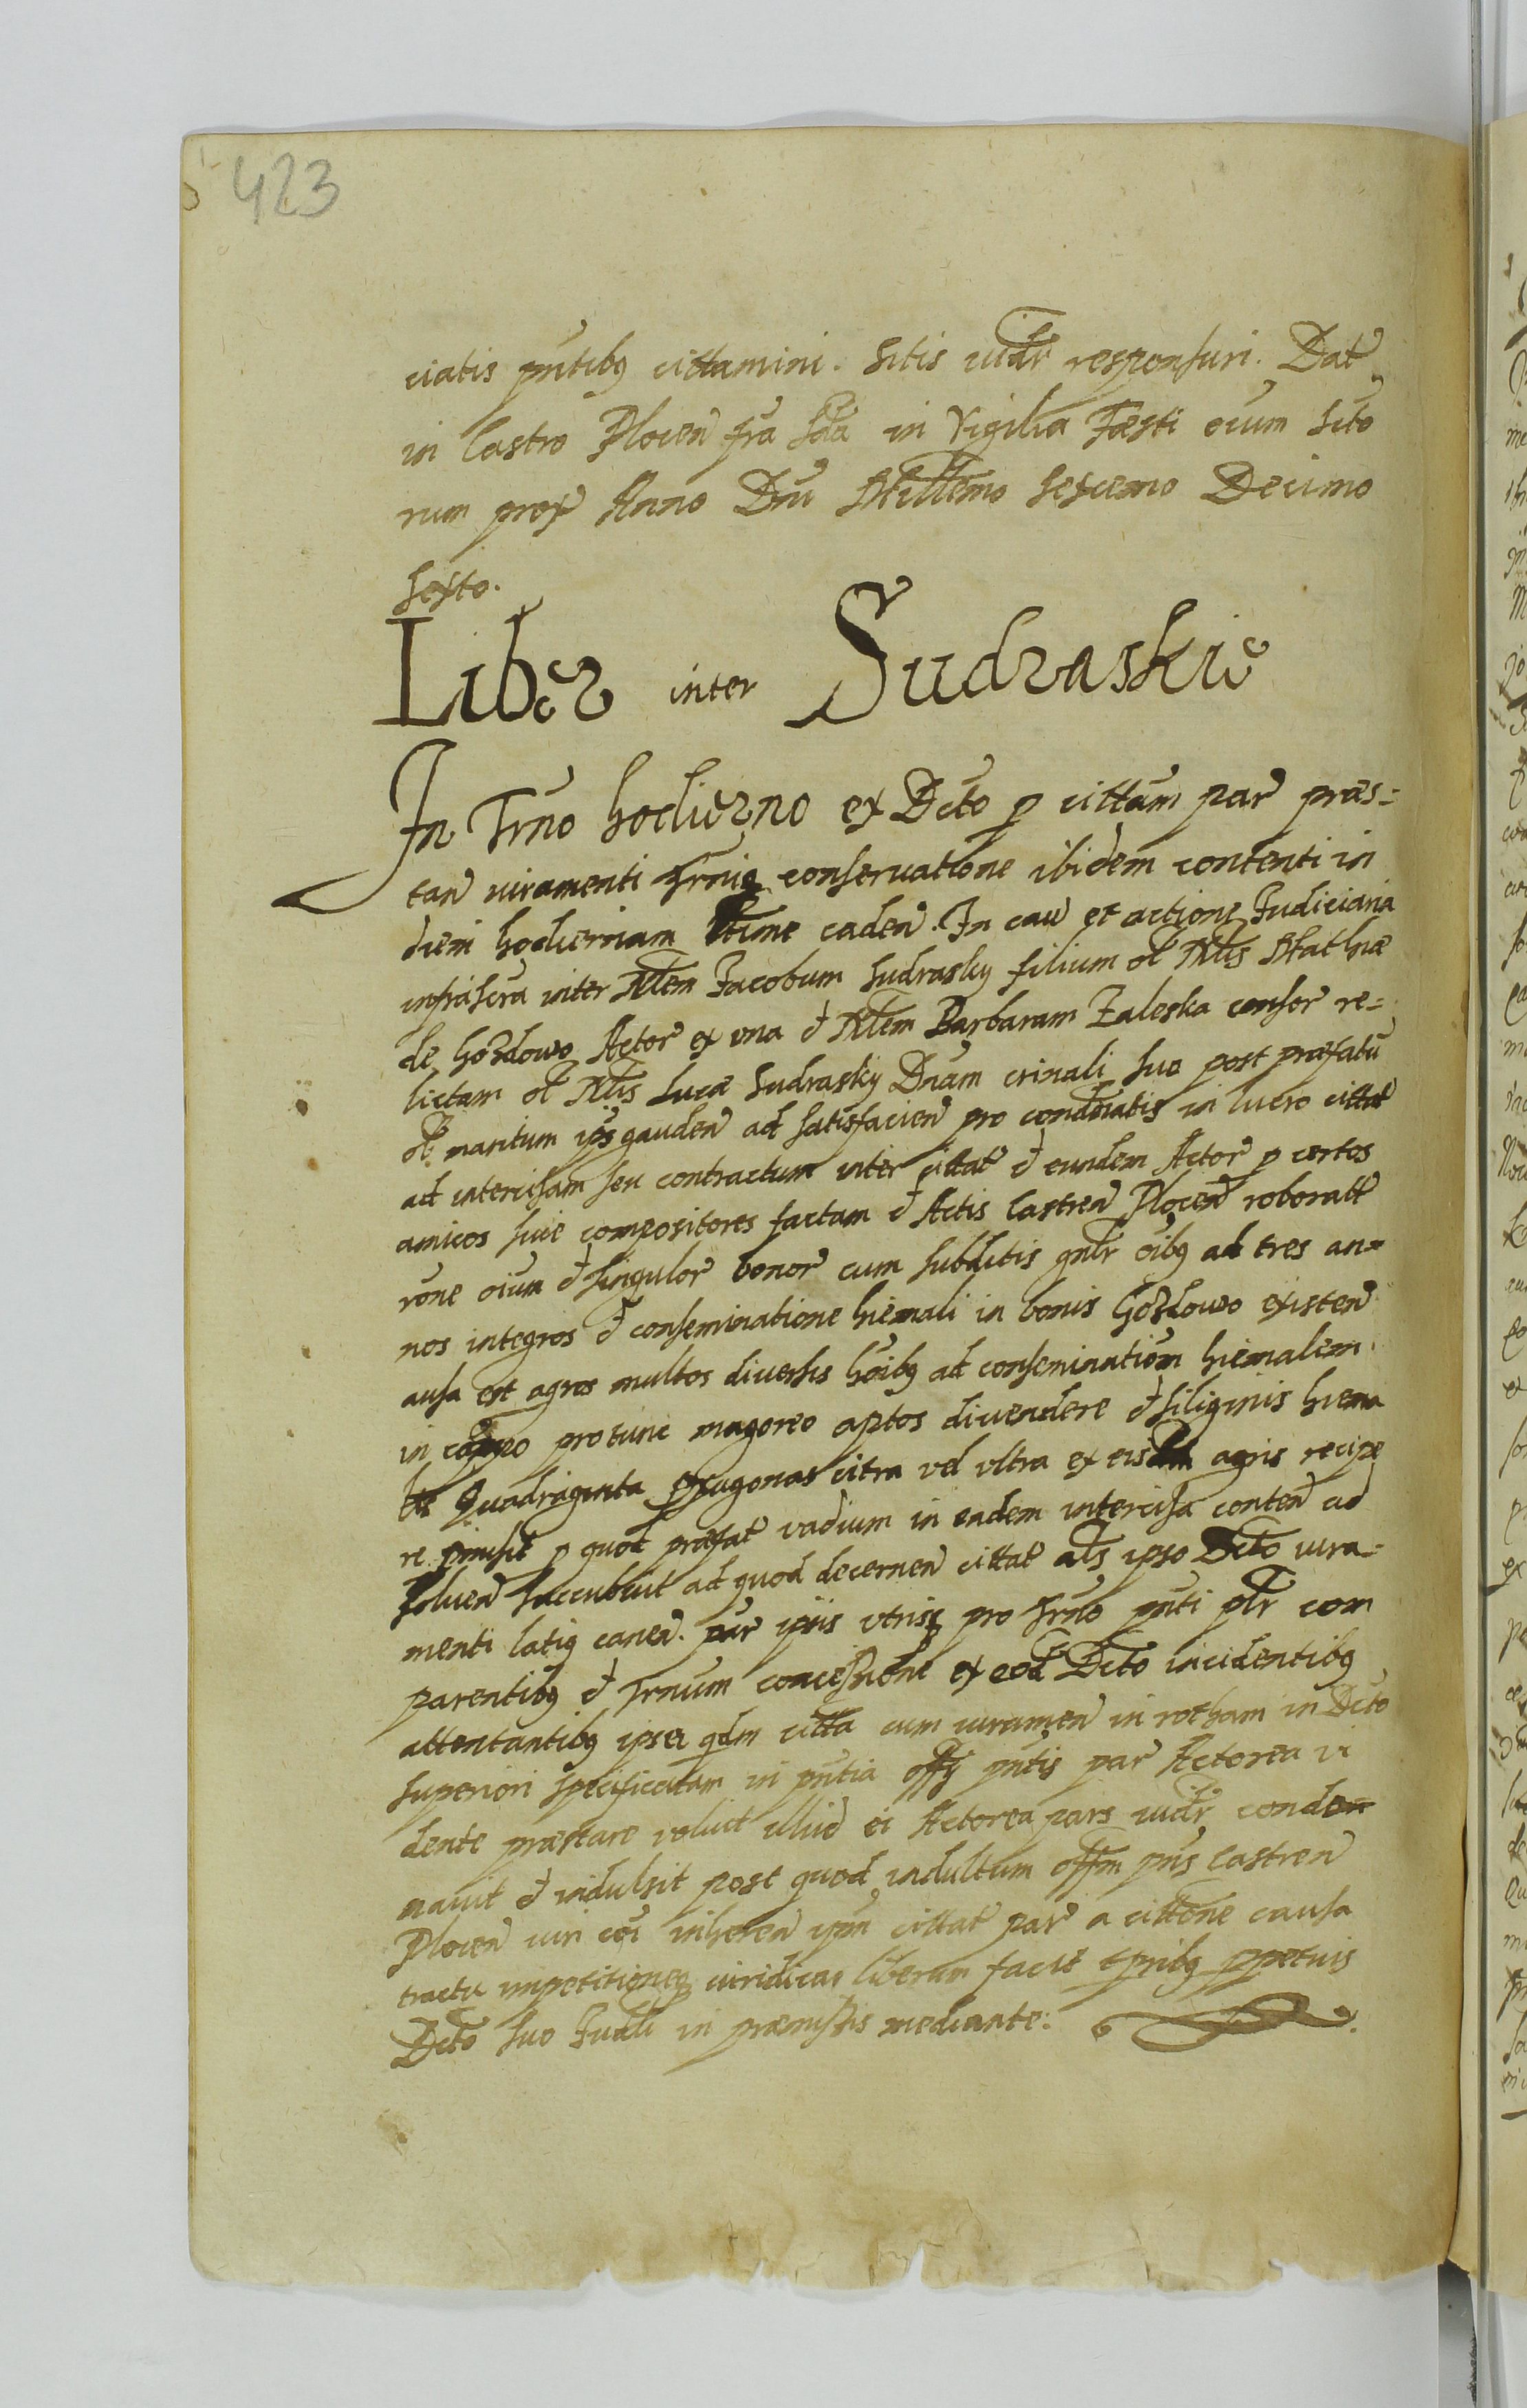 423
ciatis pntibq cittamini. Sitis iudr responsuri. Dat
in Castro Plocen fra Scda in Vigilia Fæsti oium Scto
rum prox Anno Dni Millemo sexcemo Decimo
sexto.
Liber inter Sudraskie
In Trno hodierno ex Dcto p cittam par præs=
tan iuramenti trniq conservatione ibidem contenti in
diem hodiernam ltime caden. In cau et actione Judiciaria
infrascra inter Nlem Jacobum Sudrasky filium ol Nlis Mathiæ
de Gozdowo Actor ex una & Nlem Barbaram Zaleska consor re=
lictam ol Nlis Lucæ Sudrasky Dnam crinali suo post præfatu
ol maritum ips gauden ad satisfacien pro condnatis in lucro cittat
ad intercisam seu contractum inter cittat & eundem Actor p certos
amicos suie compositores factam & Actis Castren Plocen roboratt
rone oium & singulor bonor cum subditis gnlr oibq ad tres an=
nos integros & conseminatione hiemali in bonis Gozdowo existen
ausa est agros multos diversis hoibq ad conseminationem hiemalem
in campo protunc magoreo aptos divendere & siliginis hiema
lis Quadraginta sexagonas citra vel ultra ex eisdem agris recipe
re pmisit p quod præfat vadium in eadem intercisa conten ad
solven succubuit ad quod decernen cittat als ipso Dcto iura=
menti latiq canen. par ipiis utrisq pro trno pnti plr com
parentibq & trnum concessione ex eod Dcto incidentibq
attentantibq ipsa qdm citta cum iuramen in rotham in Dcto
superiori specificatam in pntia offy pntis par Actorea vi
dente præstare voluit illud ei Actorea pars iudr conden
navit & indulsit post quod indultum offm pns Castren
Plocen iuri coi inheren ipm cittat par a cittone causa
tractu impetitioneq iuridicar liberam facit tpribq ppetuis
Dcto suo Judli in præmissis mediante.